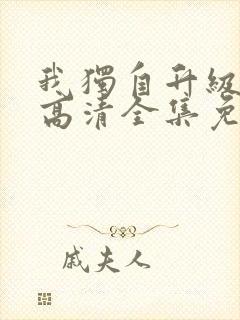 我獨自升級
高清全集免
戚夫人